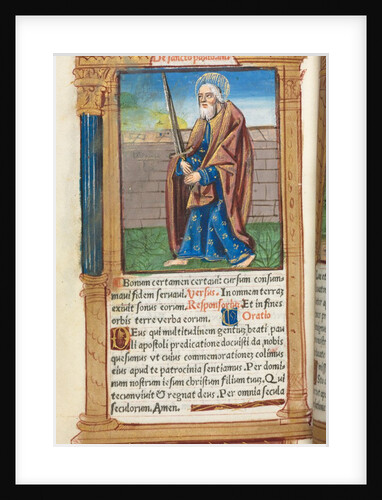 De sancto
Bonum certamen certavi: cursum consum
mavi fidem servavi. Versus. In omnem terrā
exivit sonus eorum. Responsoriū. Et in fines
orbis terre verba eorum. Oratio
Deus qui multitudinem gentiuȝ beati pau
li apostoli predicatione docuisti da, nobis
quesumus ut cuius commemorationeȝ colimus
eius apud te patrocinia sentiamus. Per domi
num nostrum iesum christum filium tuuȝ. Qui
tecum vivit & regnat deus. Per omnia secula
seculorum. Amen.